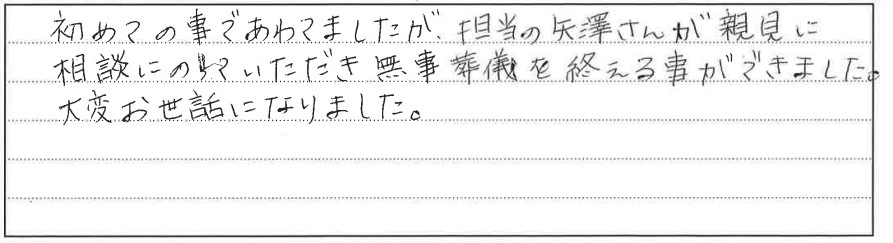 初めての事であわてましたが、担当の矢澤さんが親見に
相談にのっていただき無事葬儀を終える事ができました。
大変お世話になりました。